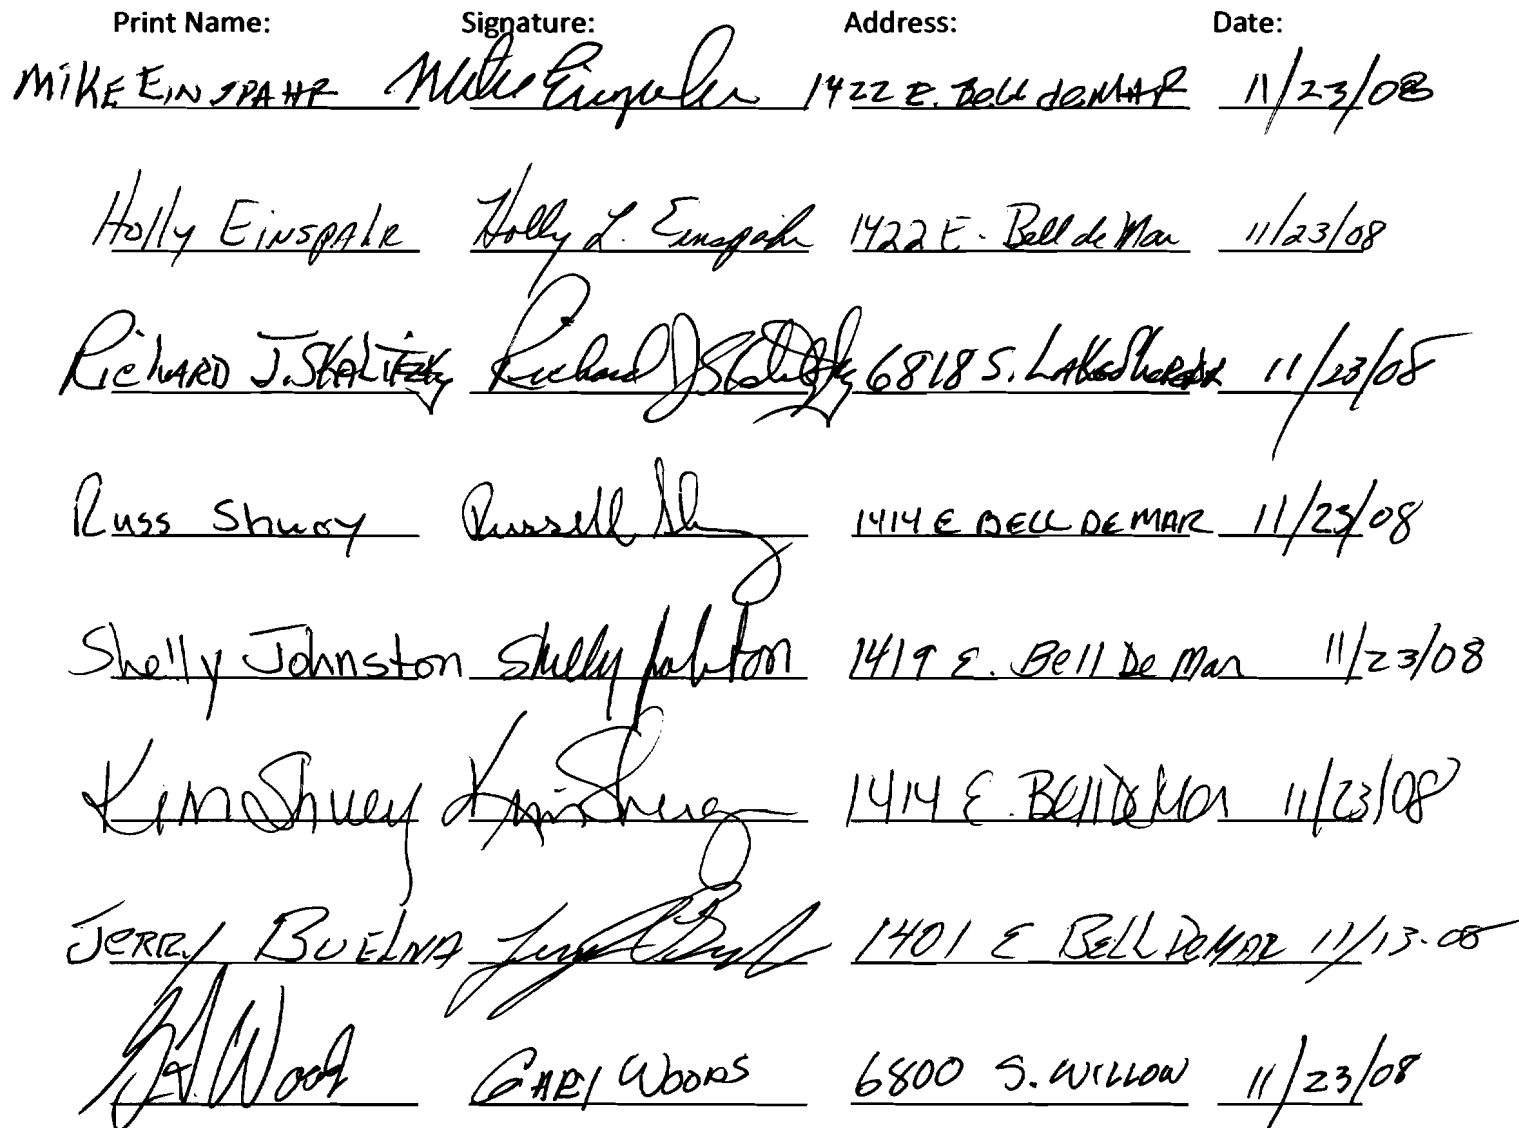 Print Name: Signature: Address: Date:
MIKE EINSPAHR Mike Einspahr 1422 E. Bell deMAR 11/23/08
Holly Einspahr Holly L. Einspahr 1422 E. Bell de Mar 11/23/08
Richard J. Skalitzky Richard J Skalitzky 6818 S. Lakeshore Dr 11/23/08
Russ Shuey Russell Shuey 1414 E BELL DE MAR 11/23/08
Shelly Johnston Shelly Johnston 1419 E. Bell De Mar 11/23/08
Kim Shuey Kim Shuey 1414 E. Bell De Mar 11/23/08
Jerry BUELNA 1401 E BELL DeMAR 11/13-08
Wood GARY WOODS 6800 S. WILLOW 11/23/08